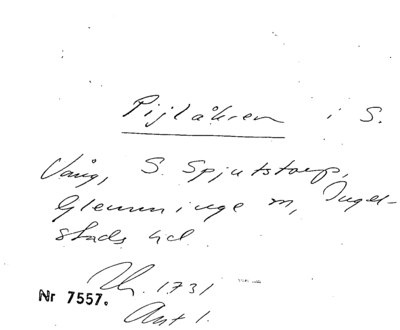 Pijlåkren i S.
Vång, S. Spjutstorp,
Glemminge m, Ingel-
stads hd
1731
Nr 7557.
Ant 1.